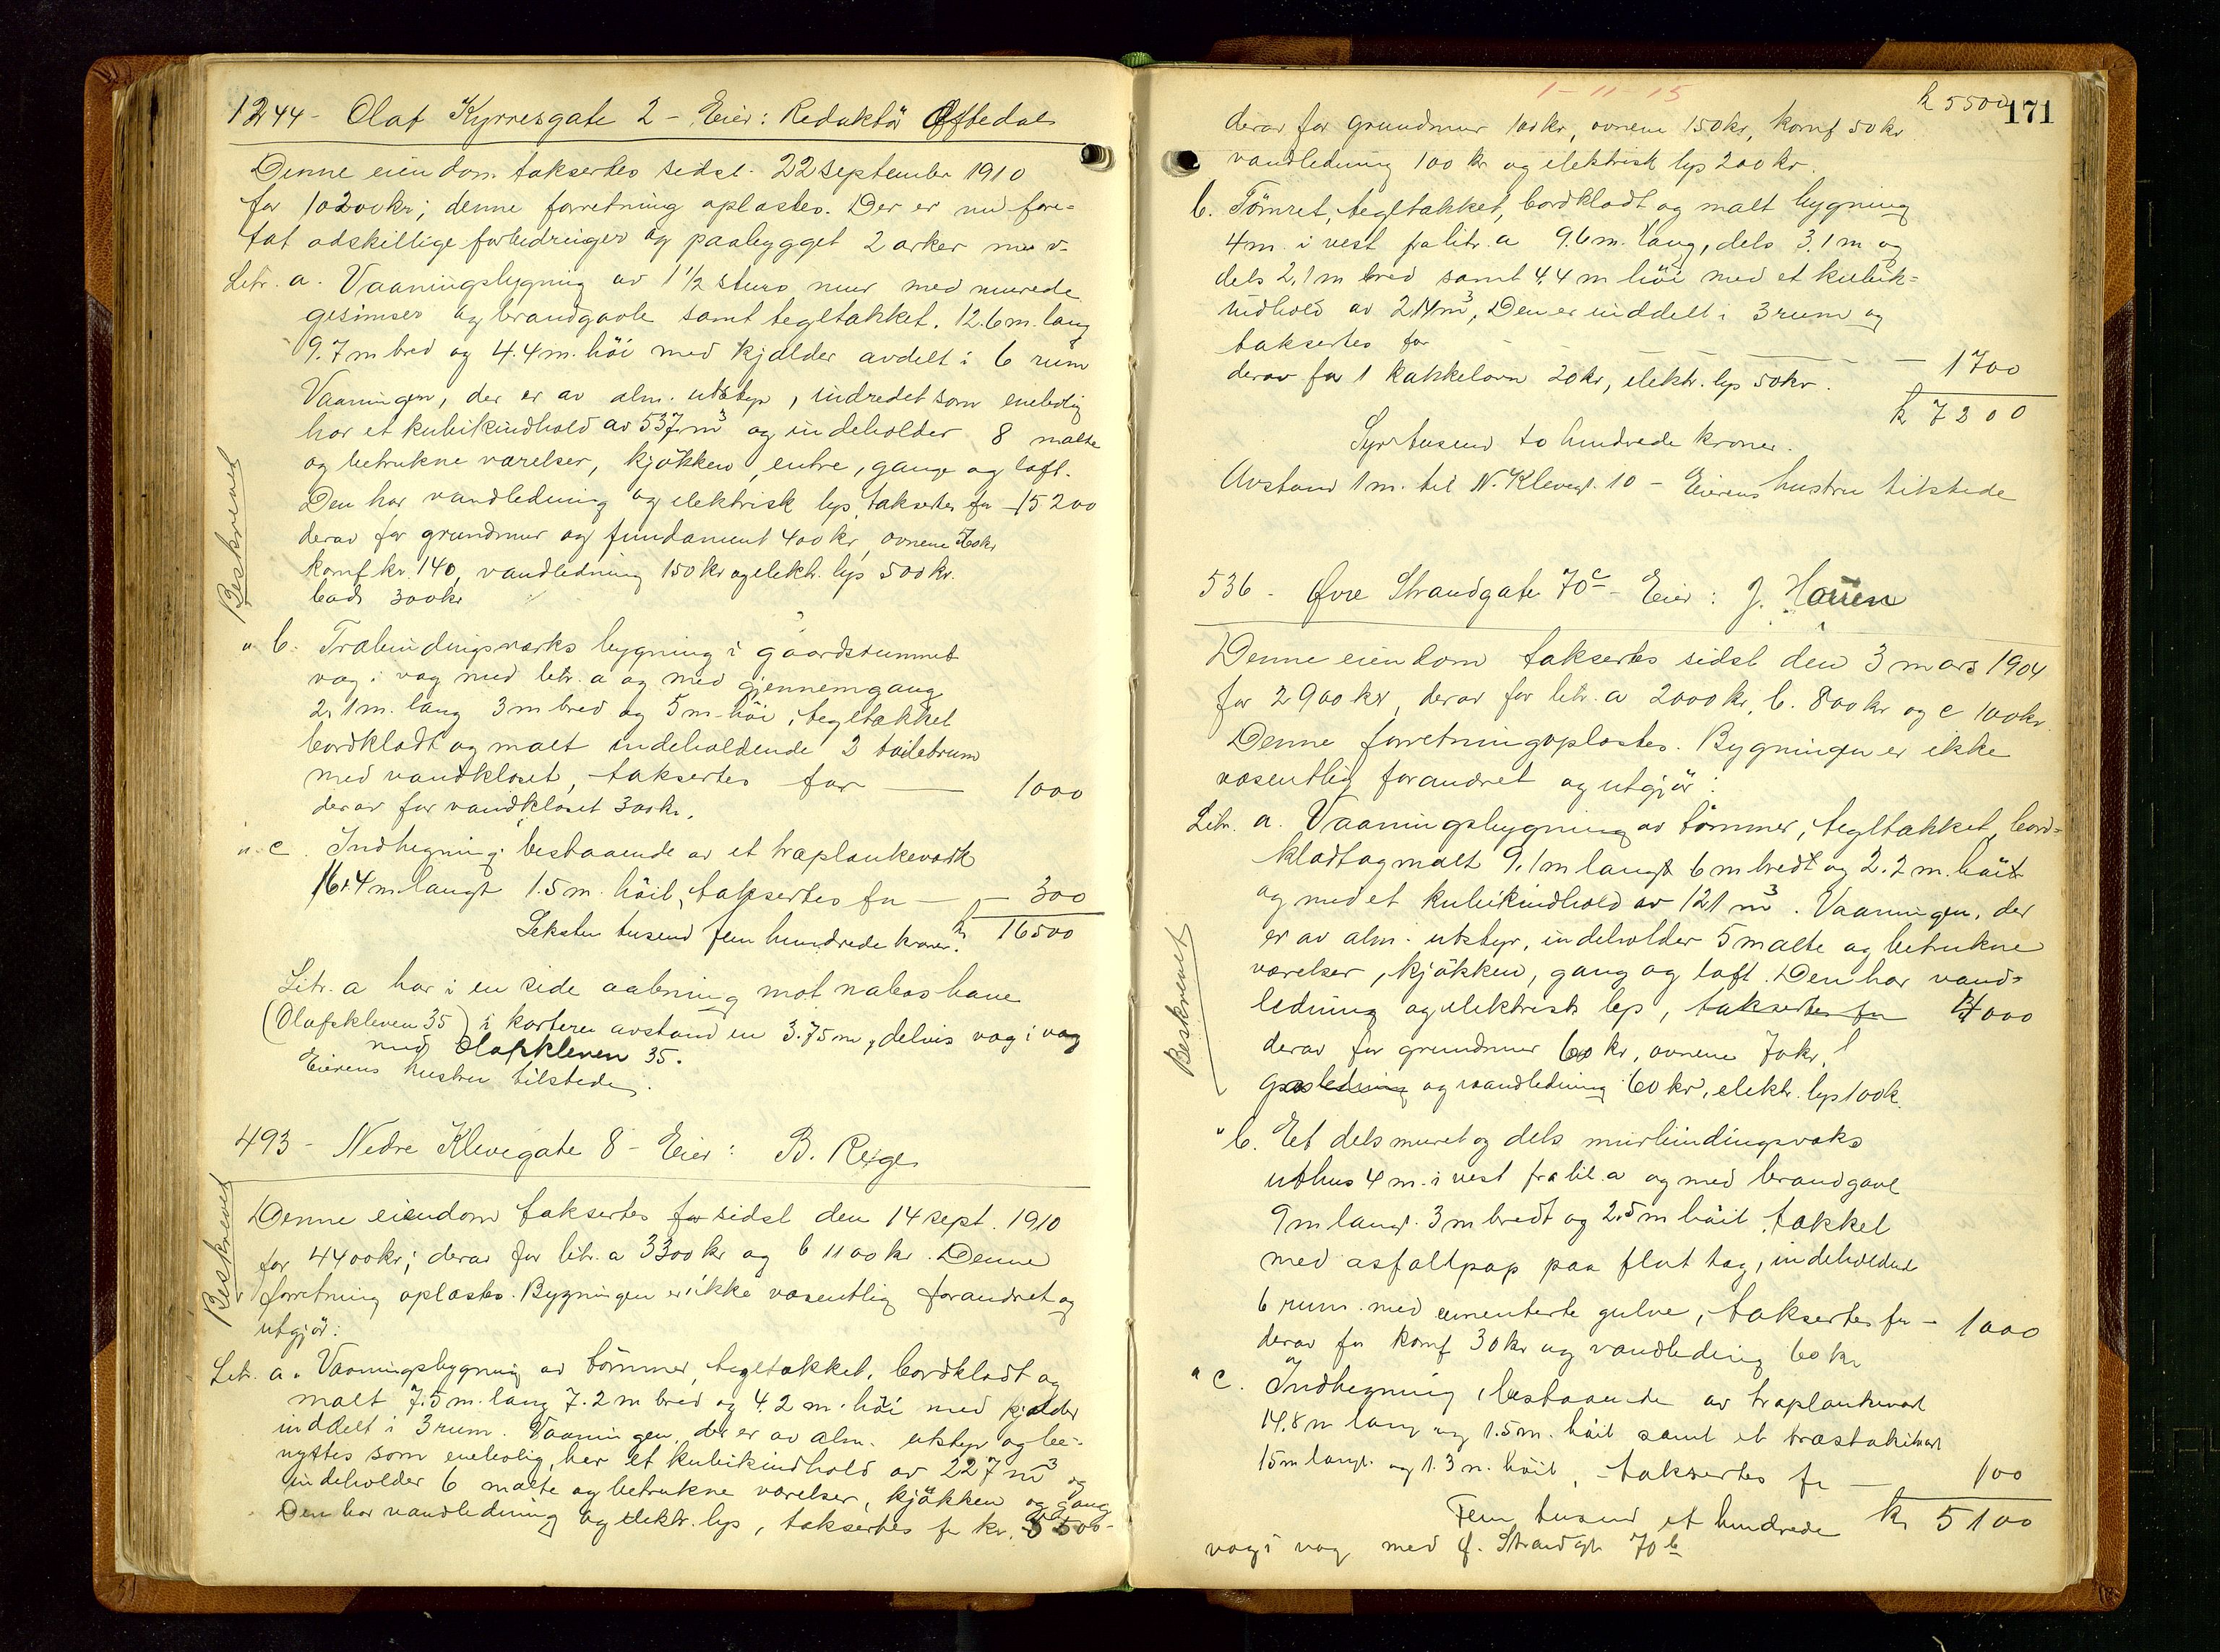 1244 - Olaf Kyrresgate 2 - Eier: Redaktör Oftedal
Denne eiendom taksertes sidst 22 september 1910
for 10200 kr; denne forretning oplöstes. Der er nu fore-
tat adskillige forbedringer og paabygget 2 arker
Beskrevet
Litr. a. Vaaningsbygning av 1 1/2 stens mur med murede
gesimser og brandgavle samt tegltækket. 12.6 m. lang
9.7 m bred og 4.4 m. höi med kjælder avdelt i 6 rum
Vaaningen, der er av alm. utstyr, indredet som enebolig
har et kubikindhold av 537 m³ og indeholder 8 malte
og betrukne værelser, kjökken, entre, gange og loft.
Den har vandledning og elektrisk lys, taksertes for - 15200
derav for grundmur og fundament 400 kr, ovnene kr
komf kr. 140, vandledning 150 kr og elektr. lys 500 kr.
bad 300 kr
" b. Træbindingsværks bygning i gaardsrummet
væg i væg med litr. a og med gjennemgang
2.1 m. lang 3 m bred og 5 m höi, tegltækket
bordklædt og malt indeholdende 2 toiletrum
med vandkloset, taksertes for — 1000
derav for vandkloset 300 kr.
" c. Indhegning bestaaende av et træplankeværk
16.4 m langt 1.5 m. höit, taksertes for — 300
Seksten tusend fem hundrede kroner. kr 16500
Litr. a har i en side aabning mot nabos have
(Olafskleven 35) i kortere avstand en 3.75 m, delvis væg i væg
med Olafskleven 35.
Eierens hustru tilstede.
493 - Nedre Klevegate 8 - Eier: B. Rege
Beskrevet
Denne eiendom taksertes for sidst den 14 sept. 1910
for 4400 kr; derav for litr. a 3300 kr og b 1100 kr. Denne
forretning oplöstes. Bygningen er ikke væsentlig forandret og
utgjör:
Litr. a. Vaaningsbygning av tömmer, tegltækket, bordklædt og
malt 7.5 m. lang 7.2 m bred og 4.2 m. höi med kjælder
inddelt i 3 rum. Vaaningen, der er av alm. utstyr og be-
nyttes som enebolig, har et kubikindhold av 227 m³ og
indeholder 6 malte og betrukne værelser, kjökken og gang
Den har vandledning og elektr. lys, taksertes for kr. 5500-
1-11-15
kr 5500
171
derav for grundmur 100 kr, ovnene 150 kr, komf 50 kr
vandledning 100 kr og elektrisk lys 200 kr.
b. Tömret, tegltækket, bordklædt og malt bygning
4 m. i vest fra litr. a 9.6 m. lang, dels 3.1 m og
dels 2.1 m bred samt 4.4 m höi med et kubik-
indhold av 214 m³, Den er inddelt i 3 rum og
taksertes for — 1700
derav for 1 kakkelovn 20 kr, elektr. lys 50 kr.
kr 7200
Syv tusend to hundrede kroner.
Avstand 1 m. til N. Klevegt. 10 - Eierens hustru tilstede
536 - Øvre Strandgate 70c - Eier: J. Hauen
Denne eiendom taksertes sidst den 3 mars 1904
for 2900 kr, derav for litr. a 2000 kr, b. 800 kr og c 100 kr.
Denne forretning oplöstes. Bygningen er ikke
væsentlig forandret og utgjör:
Beskrevet
Litr. a. Vaaningsbygning av tömmer, tegltækket, bord-
klædt og malt 9.1 m langt 6 m bredt og 2.2 m. höit
og med et kubikindhold av 121 m³. Vaaningen, der
er av alm. utstyr, indeholder 5 malte og betrukne
værelser, kjökken, gang og loft. Den har vand-
ledning og elektrisk lys, taksertes for 4000
derav for grundmur 60 kr, ovnene 70 kr,
gasledning og vandledning 60 kr, elektr. lys 100 k.
" b. Et dels muret og dels murbindingsværks
uthus 4 m. i vest fra lit. a og med brandgavl
9 m langt. 3 m bredt og 2.5 m höit, tækket
med asfaltpap paa flat tag, indeholdende
6 rum med cementerte gulve, taksertes for — 1000
derav for komf 30 kr og vandledning 60 kr
" c. Indhegning, bestaaende av træplankeværk
14.8 m lang og 1.5 m. höit samt et træstakitværk
15 m langt og 1.3 m. höit, taksertes for — 100
Fem tusend et hundrede kr 5100
væg i væg med Ø. Strandgt. 70b